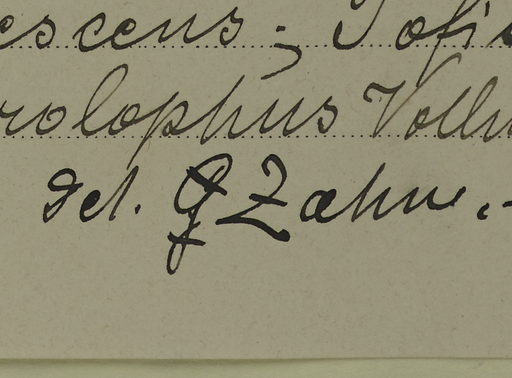 escens; Tofi
rolophus Voll
Det. G Zahn.